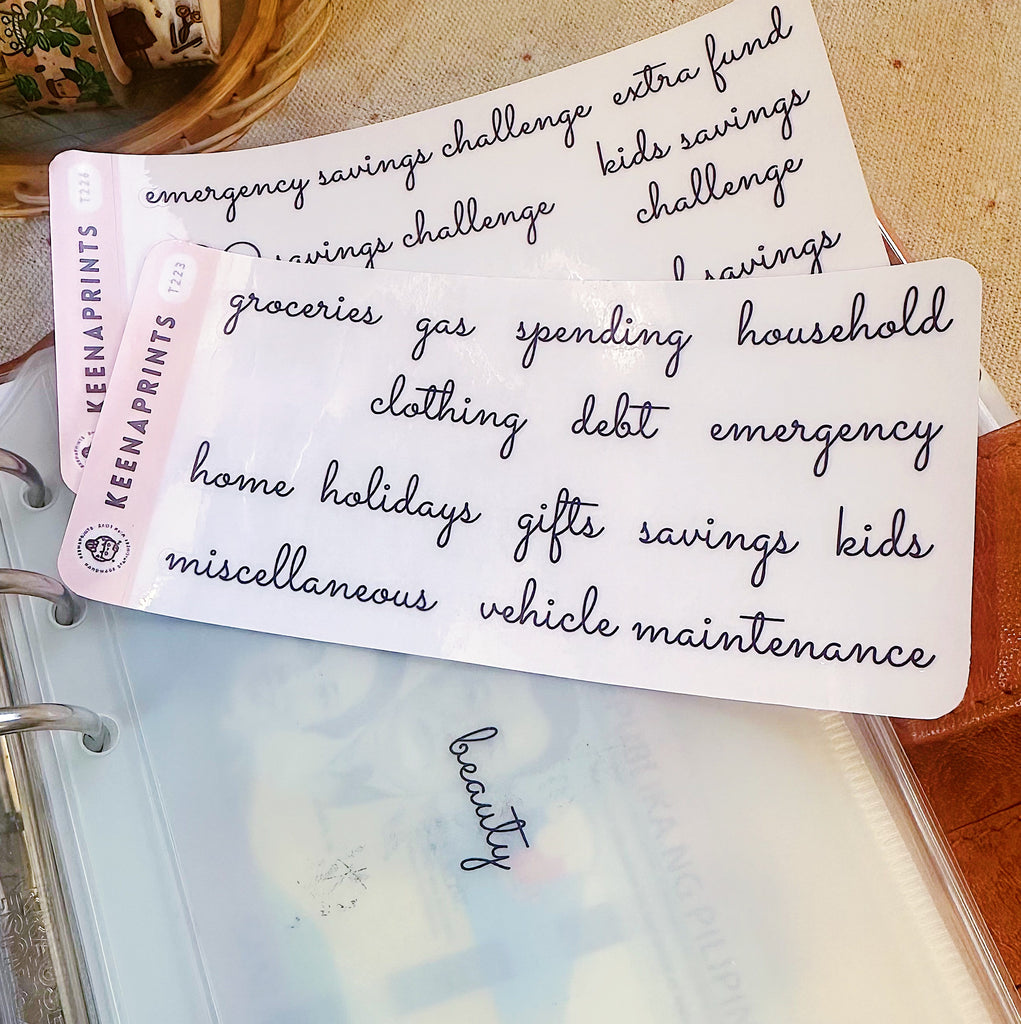 T226
KEENAPRINTS
emergency savings challenge extra fund
savings challenge kids savings
challenge
savings
T223
KEENAPRINTS
groceries gas spending household
clothing debt emergency
home holidays gifts savings kids
miscellaneous vehicle maintenance
beauty